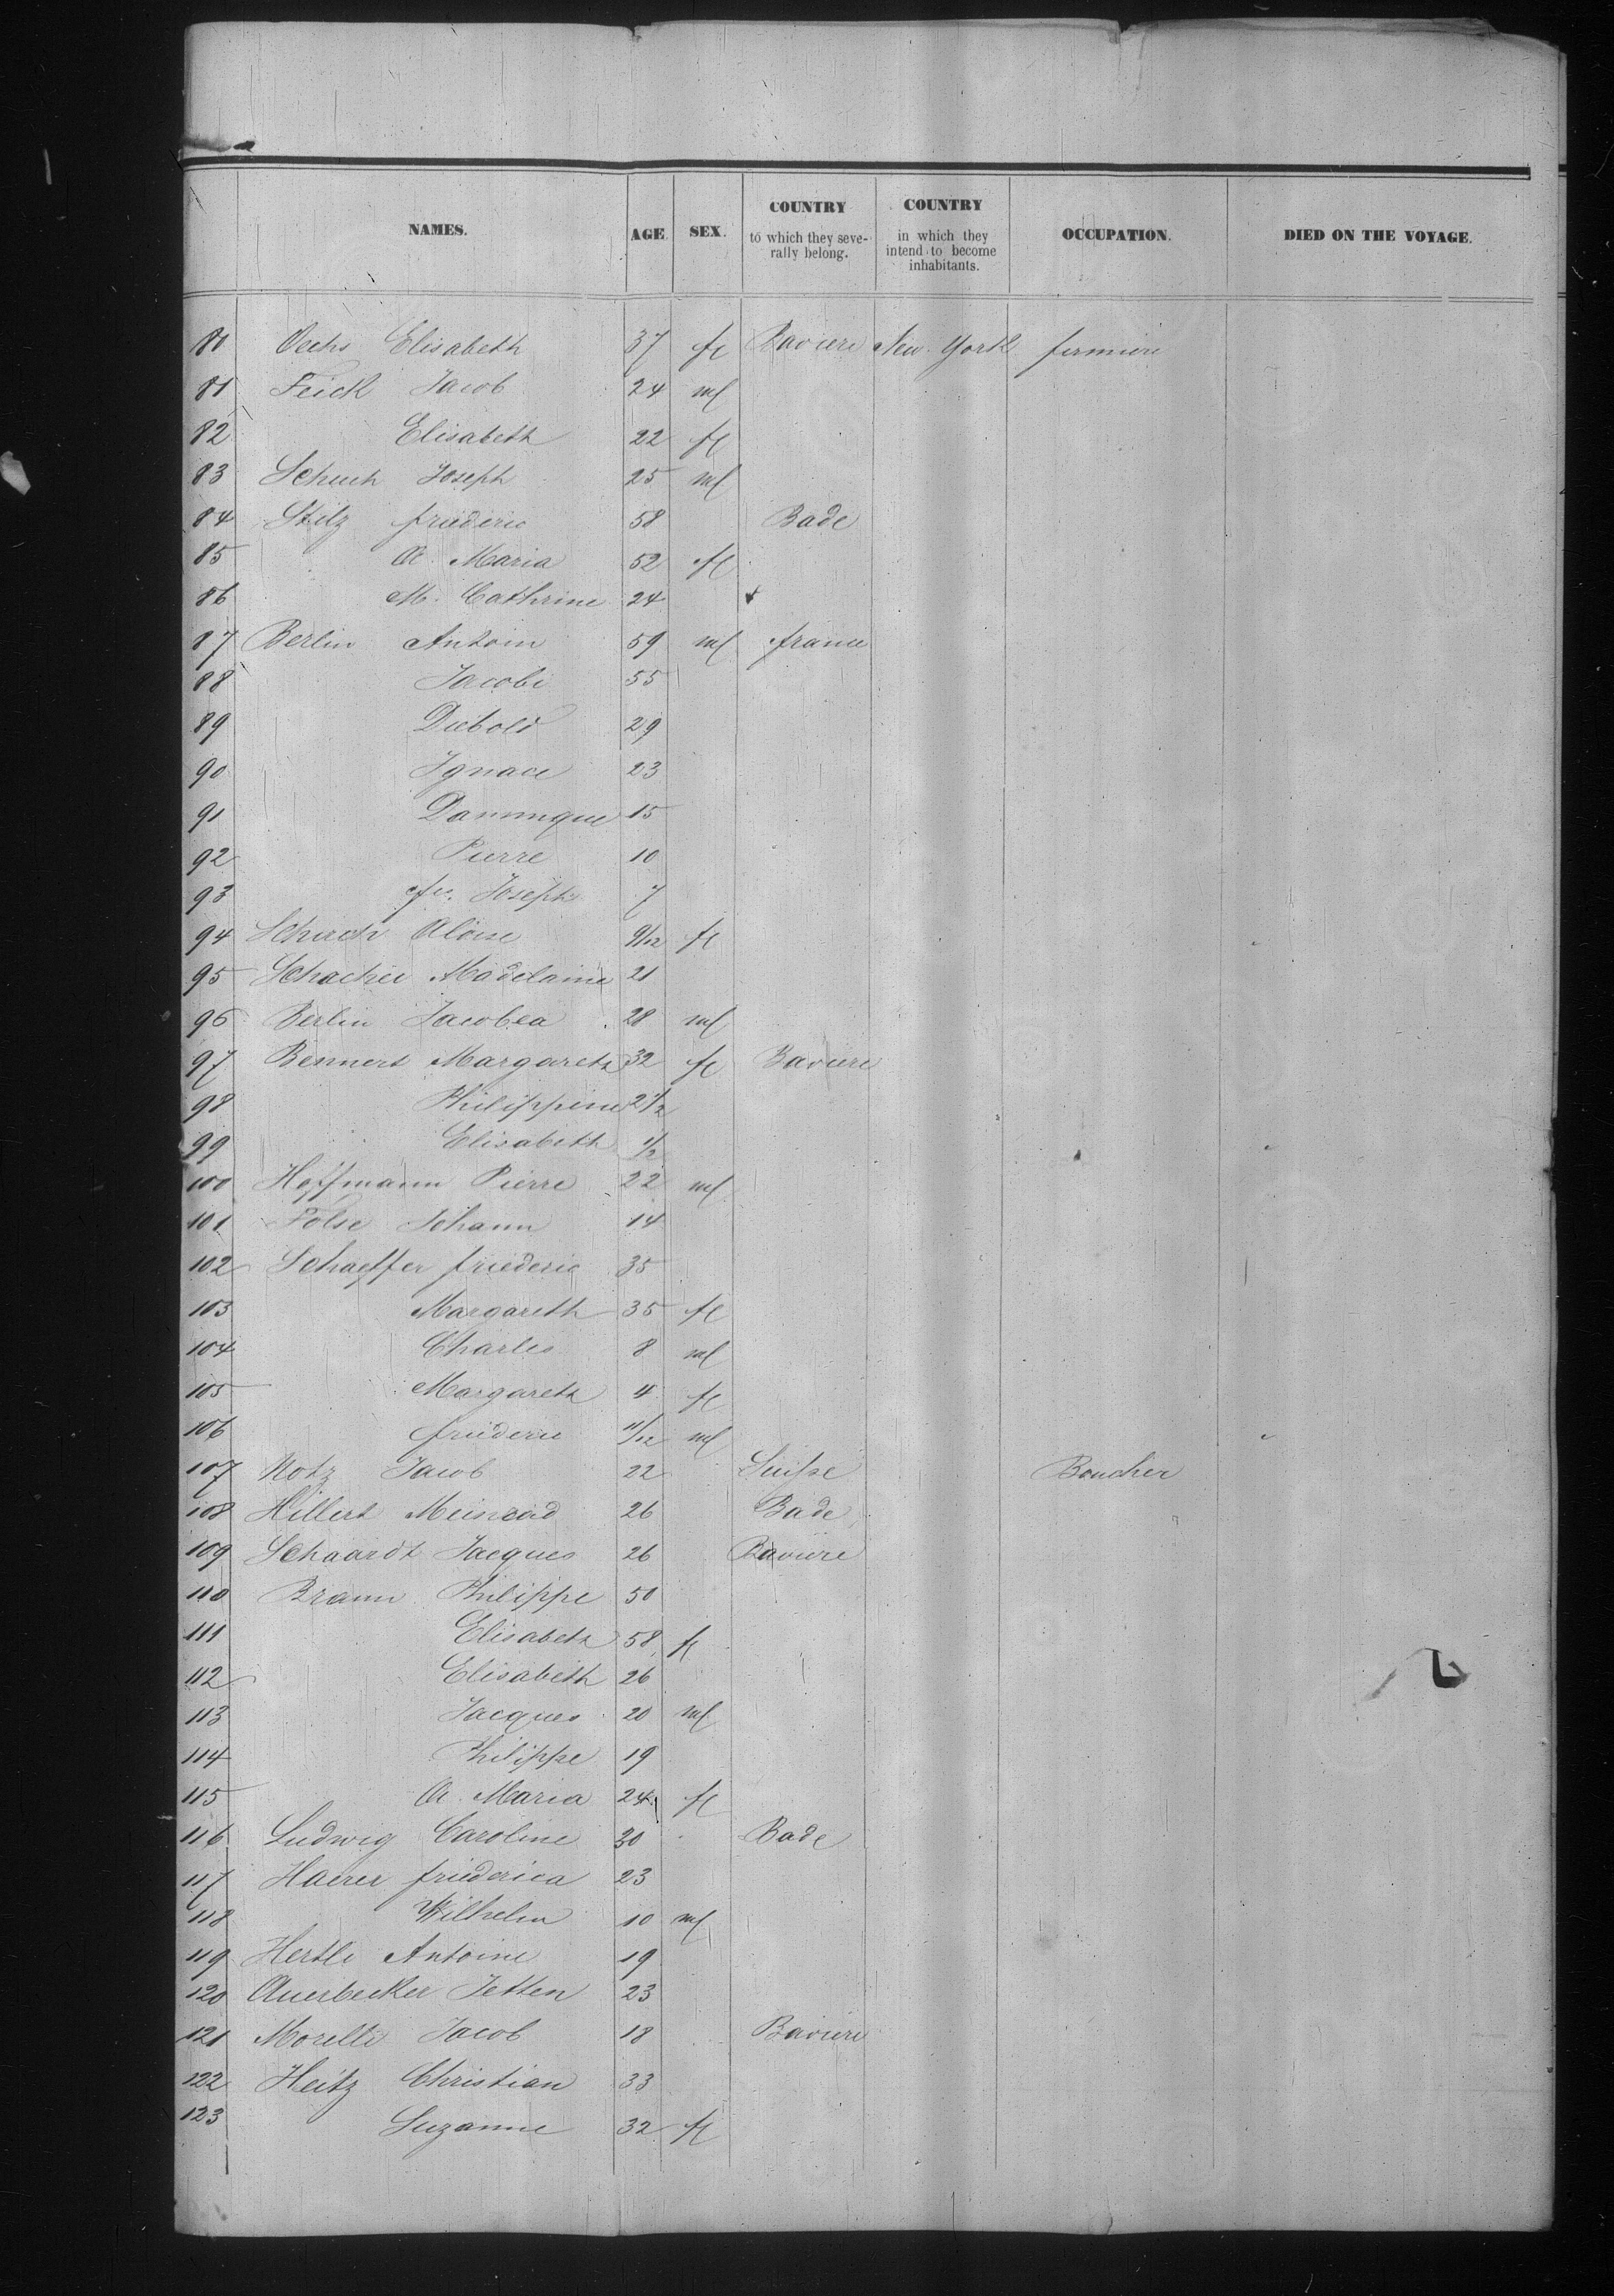 NAMES. AGE. SEX. COUNTRY to which they severally belong. COUNTRY in which they intend to become inhabitants. OCCUPATION. DIED ON THE VOYAGE.
80 Oechs Elisabeth 37 fl Baviere New York fermiere
81 Feick Jacob 24 ml
82 Elisabeth 22 fl
83 Schuch Joseph 25 ml
84 Stilz friederic 58 Bade
85 A. Maria 52 fl
86 M. Cathrine 24
87 Berlin Antoin 59 ml france
88 Jacobe 55
89 Diebold 29
90 Ignace 23
91 Dominque 15
92 Pierre 10
93 Joseph 7
94 Aloise 9/12 fl
95 Schacher Madelaine 21
96 Berlin Jacobea 28 ml
97 Bennert Margareth 32 fl Baviere
98 Philippine 2 1/2
99 Elisabeth 1/2
100 Hoffmann Pierre 22 ml
101 Folse Johann 14
102 Schaeffer friederic 35
103 Margareth 35 fl
104 Charles 8 ml
105 Margareth 4 fl
106 friederic 11/12 ml
107 Notz Jacob 22 Suisse Boucher
108 Hillert Meinrad 26 Bade
109 Schaardt Jacques 26 Baviere
110 Braun Philippe 50
111 Elisabeth 58 fl
112 Elisabeth 26
113 Jacques 20 ml
114 Philippe 19
115 A. Maria 24 fl
116 Ludwig Caroline 30 Bade
117 Haerer friederica 23
118 Wilhelm 10 ml
119 Hertle Antoine 19
120 Auerbecker Jetten 23
121 Morelle Jacob 18 Baviere
122 Heitz Christian 33
123 Suzanne 32 fl